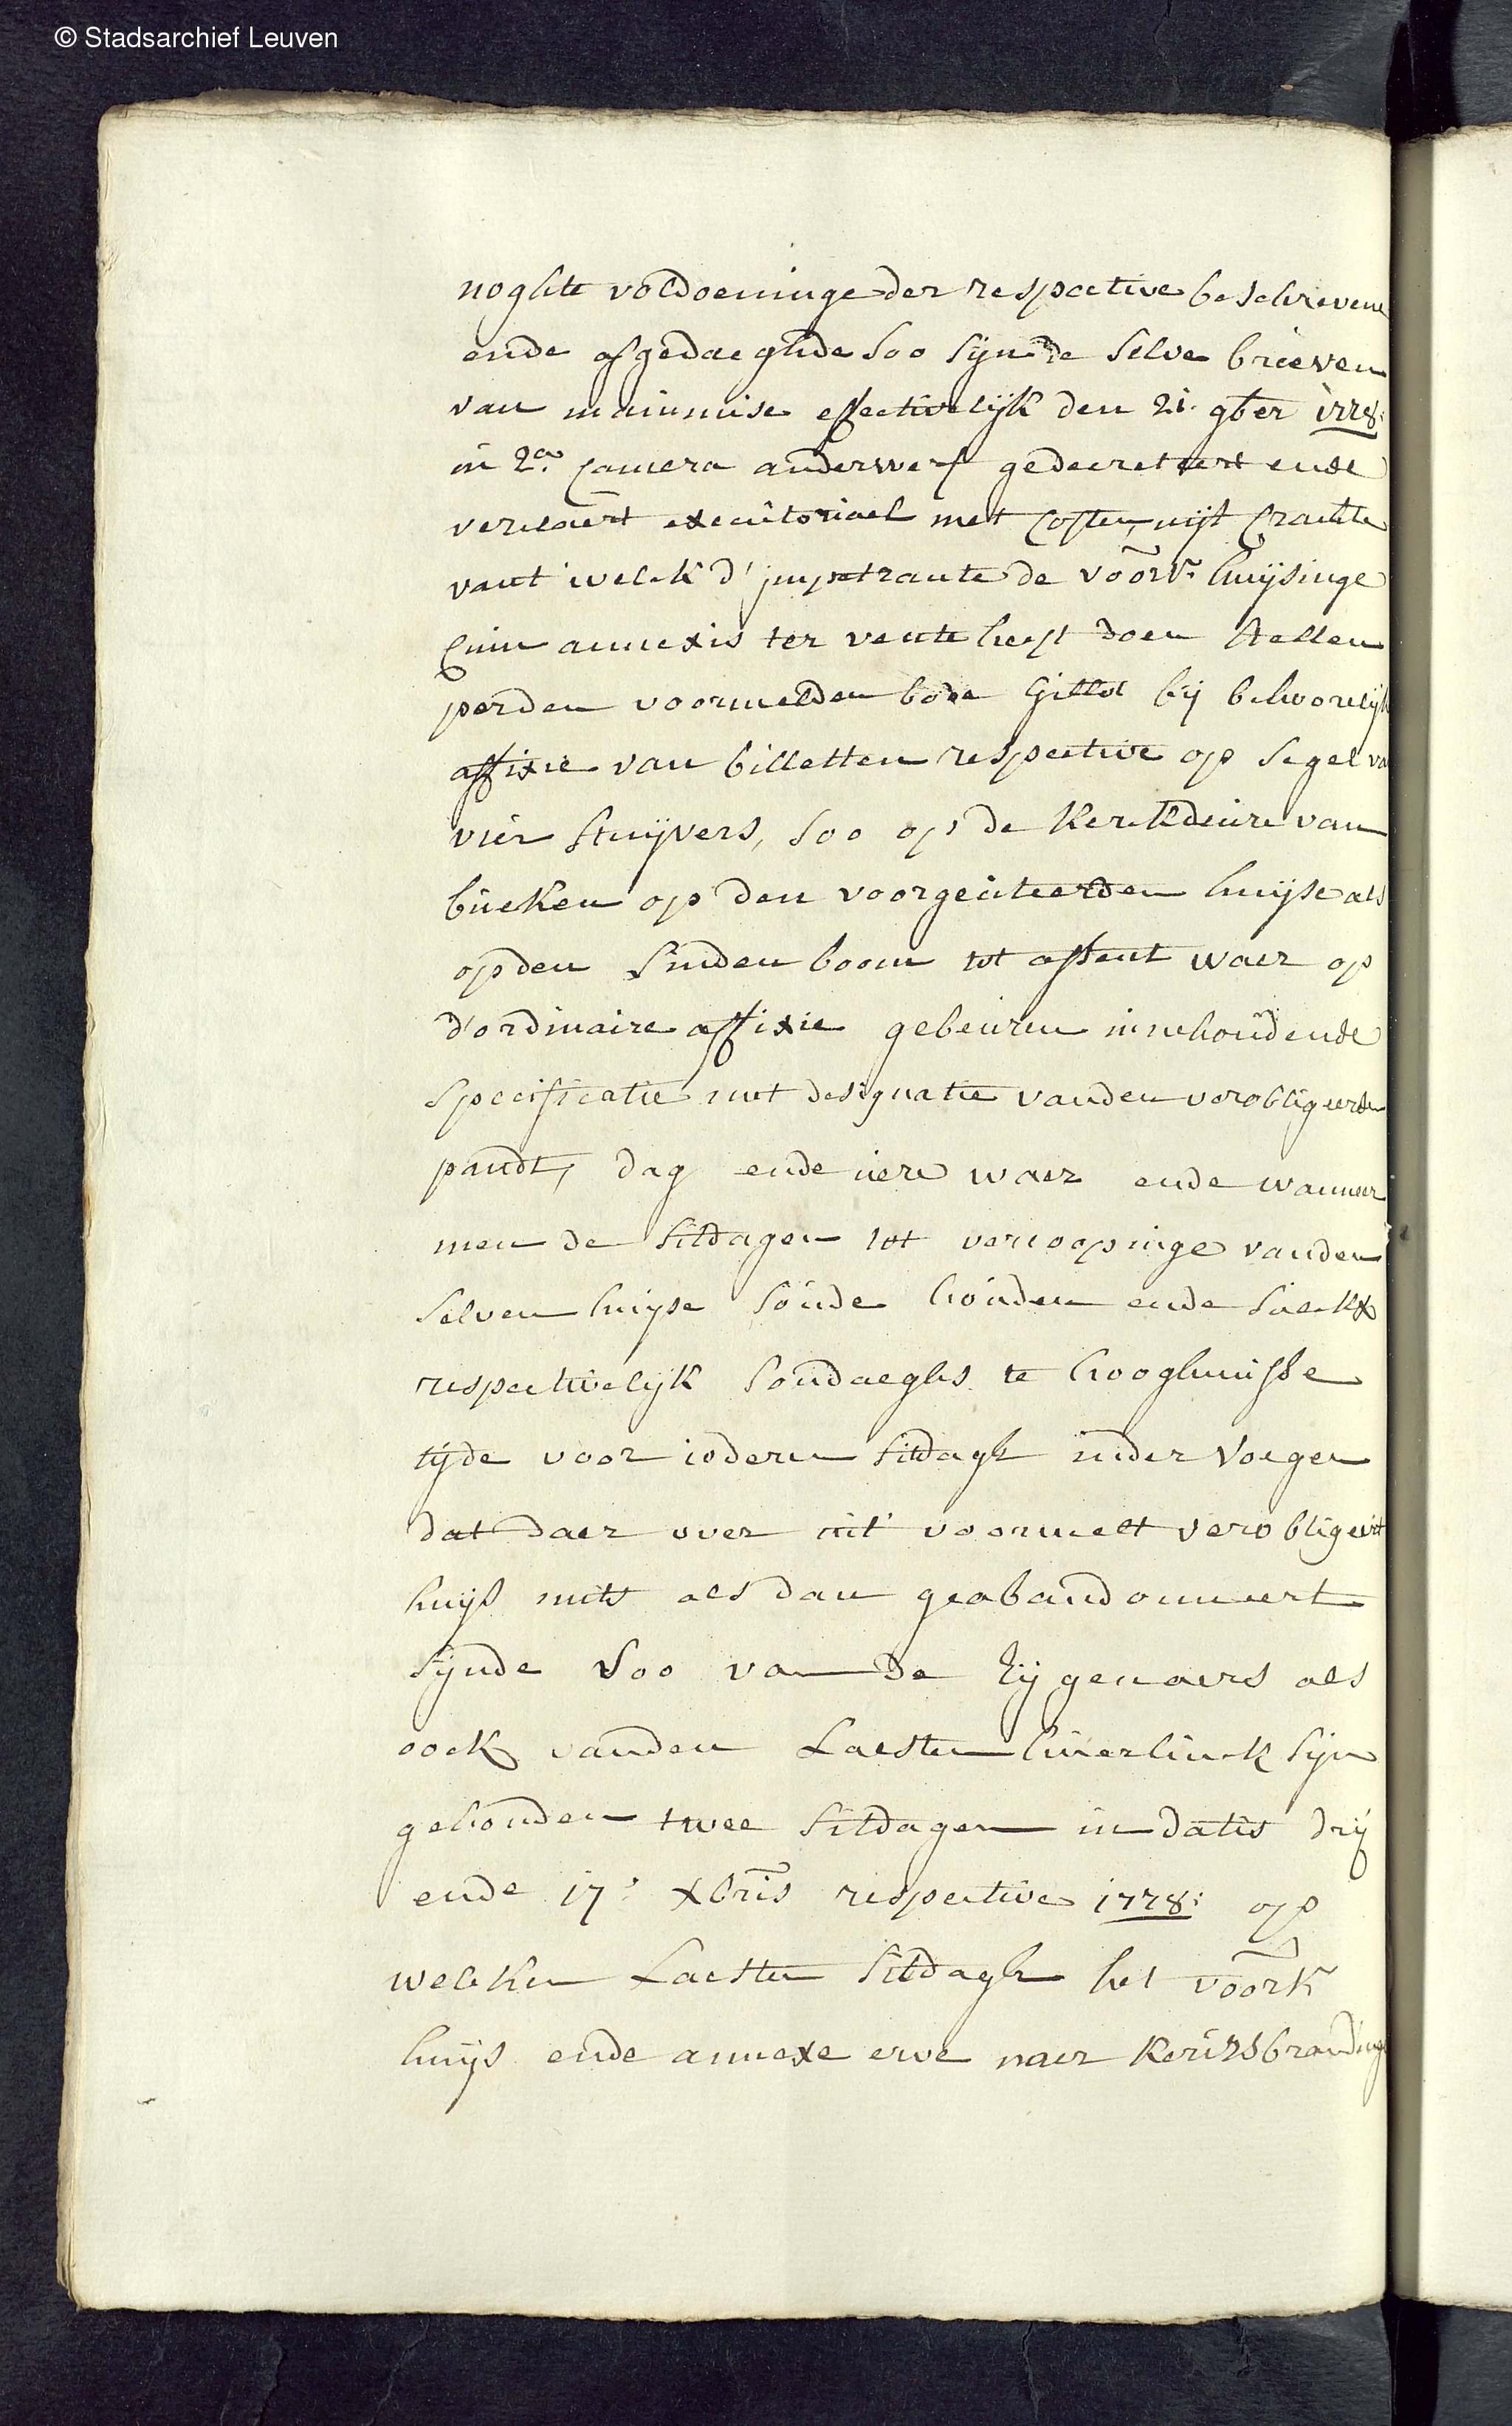 © Stadsarchief Leuven
noghte voldoeninge der respective beschrevene
ende afgedaeghde soo sijn de selve brieven
van mainmise effectivelijk den 21: 9ber 1778:
in 2a: camera anderwerf gedecreteert ende
verclaert executoriael met costen, uijt crachte
vant welck d'impetrante de voors: huijsinge
cum annexis ter vente heeft doen stellen
per den voormelden bode Gillot bij behoorelijk
affixie van billetten respective op segel va
vier stuijvers, soo op de kerckdeure van
bueken op den voorgeciteerden huijse als
op den linden boom tot assent waer op
d'ordinaire affixie gebeuren innehoudende
specificatie met designatie vanden verobligeerden
pandt, dag ende uere waer ende wanneer
men de sitdagen tot vercoopinge vanden
selven huijse soude houden ende sulckx
respectivelijk sondaeghs te hooghmisse
tijde voor iederen sitdagh inder voegen
dat daer over uit voormelt verobligeert
huijs mits als dan geabandonneert
sijnde soo van de Eijgenaers als
oock vanden Laesten huerlinck sijn
gehouden twee sitdagen in datis drij
ende 17: xbris respective 1778: op
welcken Laesten sitdagh het voors
huijs ende annexe erve naer keirsbrandinge